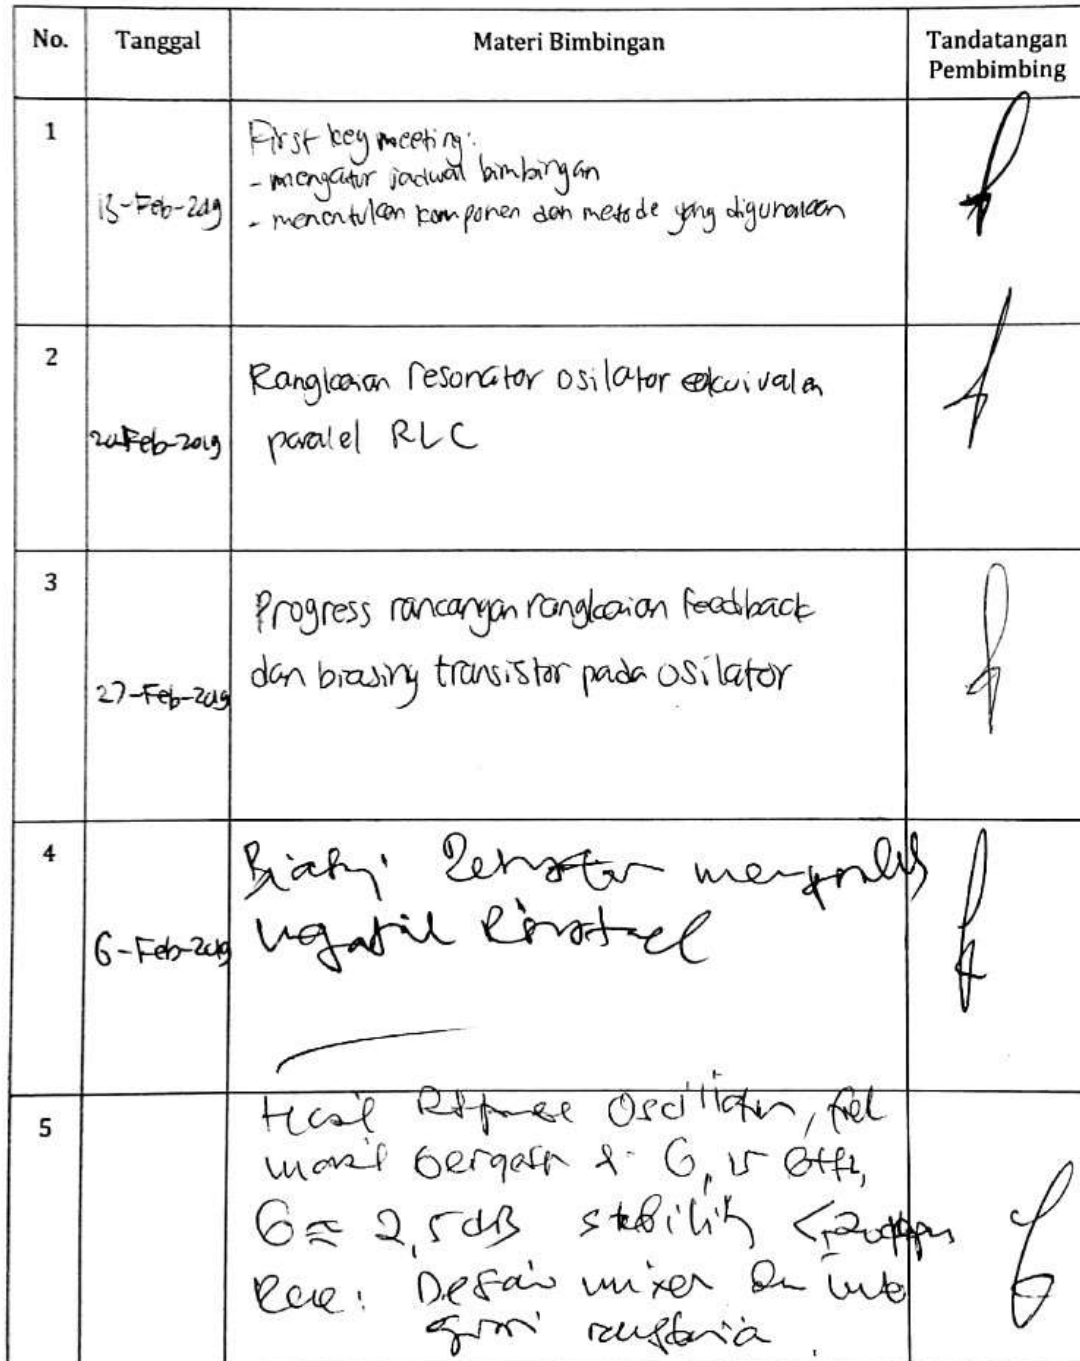 No.
Tanggal
Materi Bimbingan
Tandatangan
Pembimbing
1
13-Feb-2019
First key meeting:
- mengatur jadwal bimbingan
- menentukan komponen dan metode yang digunakan
2
20-Feb-2019
Rangkaian resonator osilator ekuivalen
paralel RLC
3
27-Feb-2019
Progress rancangan rangkaian feedback
dan biasing transistor pada osilator
4
6-Feb-2019
negatif
5
Hasil Oscillator,
masih bergeser
G ≈ 2,5 dB stability
Desain mixer